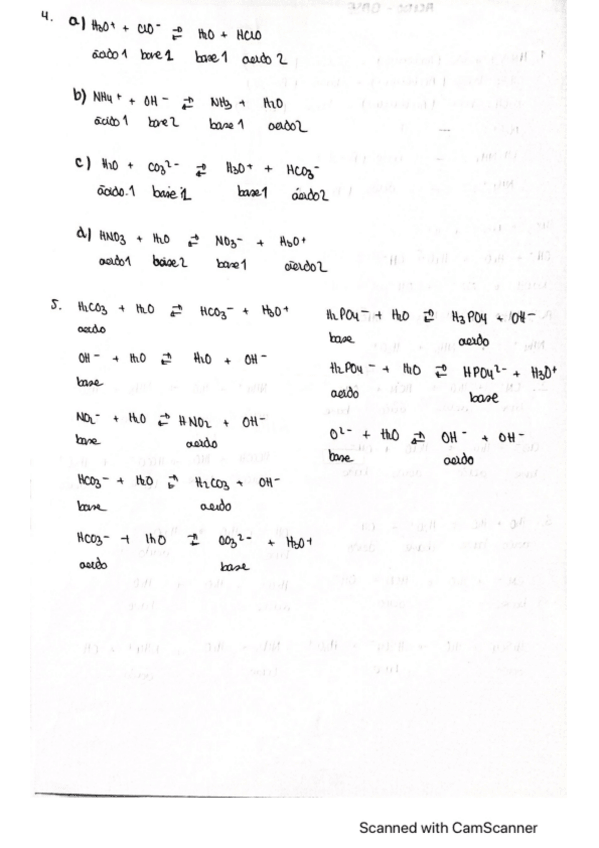 4. a) H3O+ + ClO- ⇌ H2O + HClO
ácido 1 base 2 base 1 ácido 2
b) NH4+ + OH- ⇌ NH3 + H2O
ácido 1 base 2 base 1 ácido 2
c) H2O + CO3 2- ⇌ H3O+ + HCO3-
ácido 1 base 2 base 1 ácido 2
d) HNO3 + H2O ⇌ NO3- + H3O+
ácido 1 base 2 base 1 ácido 2
5. H2CO3 + H2O ⇌ HCO3- + H3O+
ácido
OH- + H2O ⇌ H2O + OH-
base
NO2- + H2O ⇌ HNO2 + OH-
base ácido
HCO3- + H2O ⇌ H2CO3 + OH-
base ácido
HCO3- + H2O ⇌ CO3 2- + H3O+
ácido base
H2PO4- + H2O ⇌ H3PO4 + OH-
base ácido
H2PO4- + H2O ⇌ HPO4 2- + H3O+
ácido base
O2- + H2O ⇌ OH- + OH-
base ácido
Scanned with CamScanner